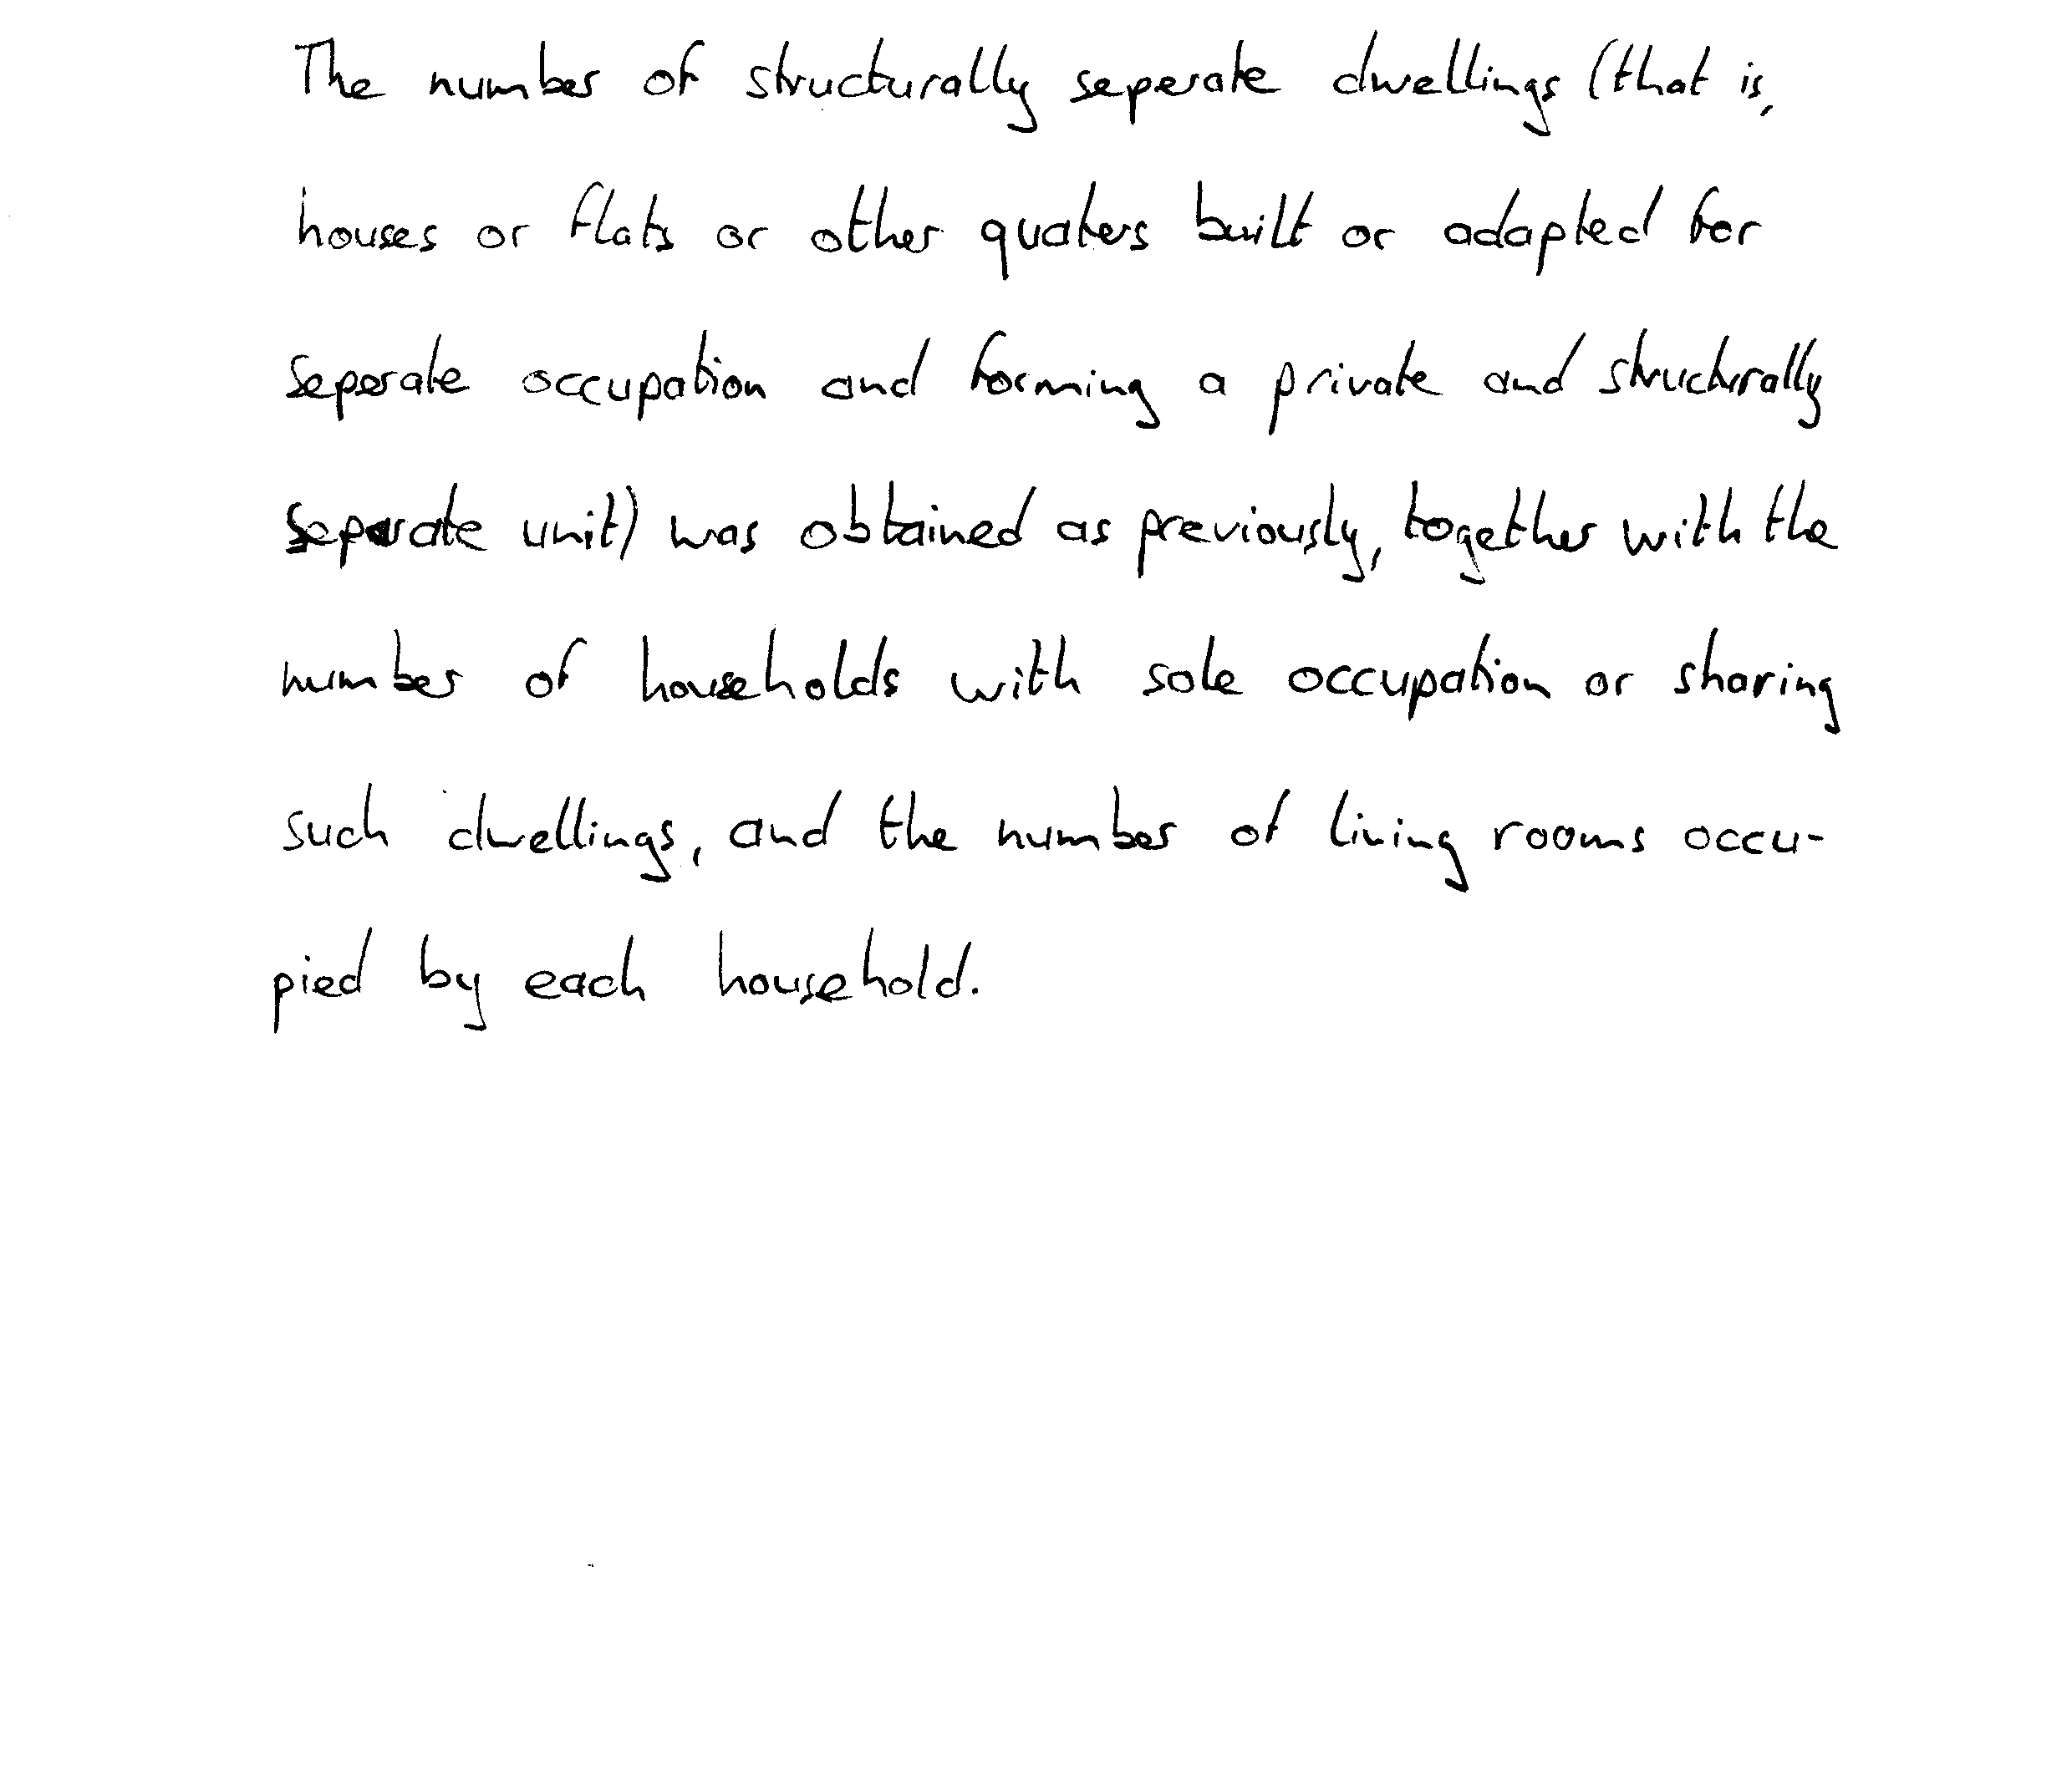 The number of structurally seperate dwellings (that is,
houses or flats or other quaters built or adapted for
separate occupation and forming a private and structurally
separate unit) was obtained as previously, together with the
number of households with sole occupation or sharing
such dwellings, and the number of living rooms occu-
pied by each household.